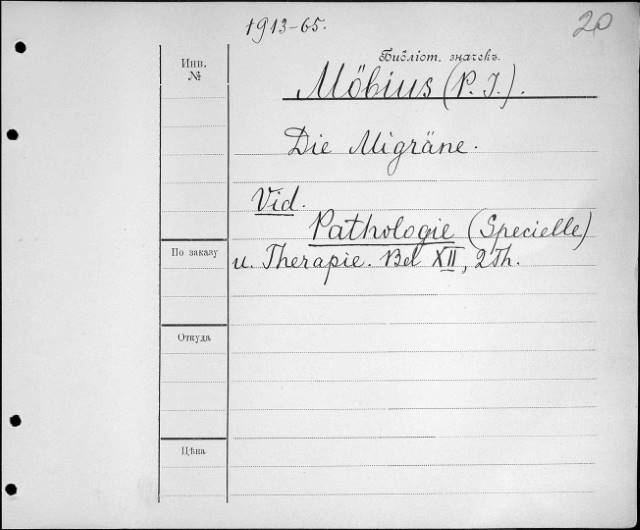 1913-65.
20
Инв.
№
Библіот. значекъ.
Möbius (P. J.).
Die Migräne.
Vid.
Pathologie (Specielle)
По заказу
u. Therapie. Bd XII, 2Th.
Откуда
Цѣна